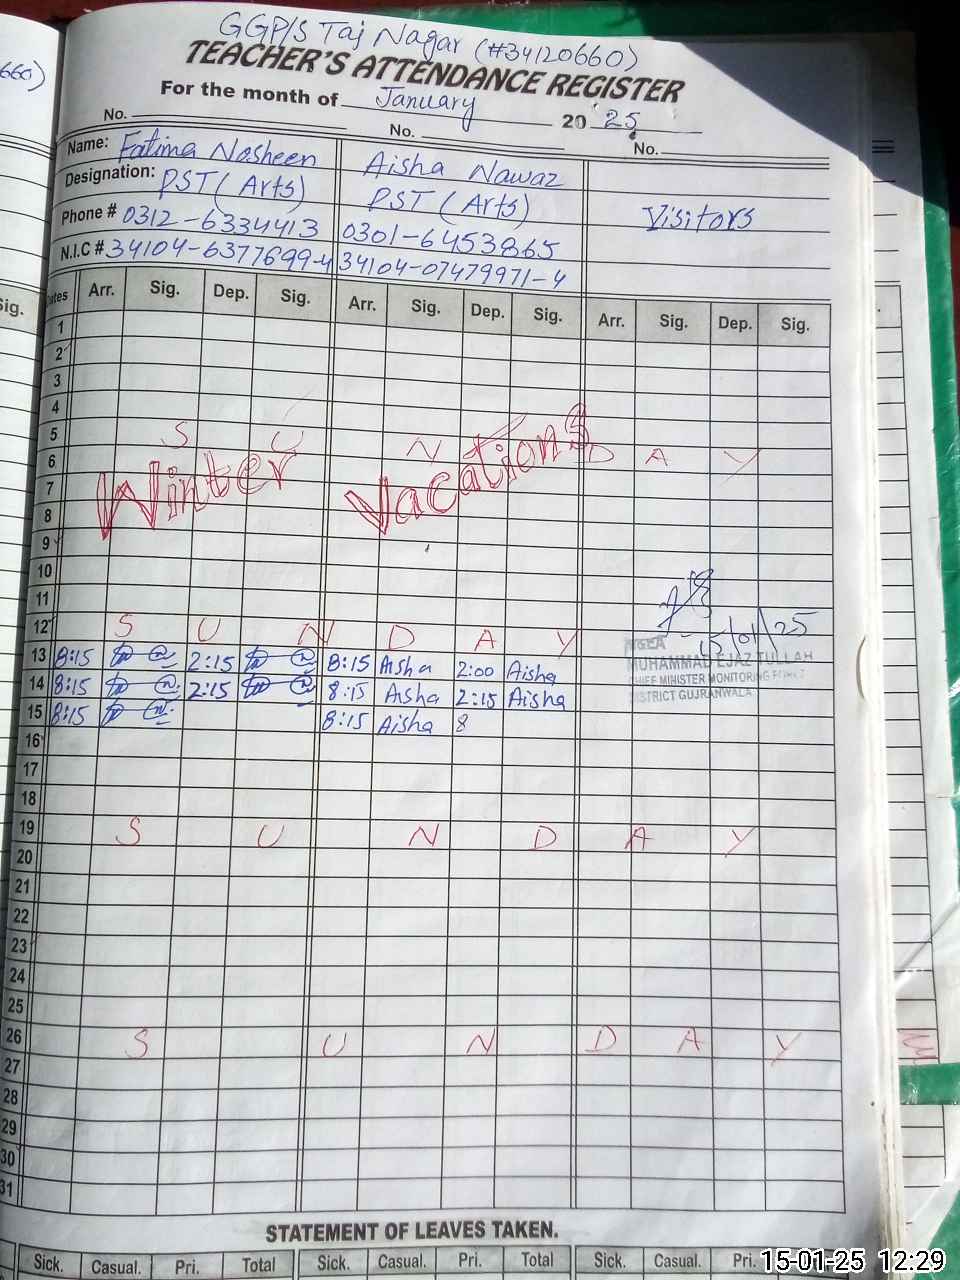 660)
GGP/S Taj Nagar (#34120660)
TEACHER'S ATTENDANCE REGISTER
For the month of January 2025
No. No. No.
Name: Fatima Nosheen Aisha Nawaz
Designation: PST (Arts) PST (Arts) Visitors
Phone # 0312-6334413 0301-6453865
N.I.C # 34104-6377699-4 34104-07479971-4
Sig. Dates Arr. Sig. Dep. Sig. Arr. Sig. Dep. Sig. Arr. Sig. Dep. Sig.
1
2
3
4
5 S U N D A Y
6
7 Winter Vacations
8
9
10
11
12 S U N D A Y
15/01/25
13 8:15 2:15 8:15 Aisha 2:00 Aisha
MUHAMMAD EJAZ TULLAH
14 8:15 2:15 8:15 Aisha 2:15 Aisha
CHIEF MINISTER MONITORING FORCE
DISTRICT GUJRANWALA
15 8:15 8:15 Aisha 8
16
17
18
19 S U N D A Y
20
21
22
23
24
25
26 S U N D A Y
27
28
29
30
31
STATEMENT OF LEAVES TAKEN.
Sick. Casual. Pri. Total Sick. Casual. Pri. Total Sick. Casual. Pri.
15-01-25 12:29